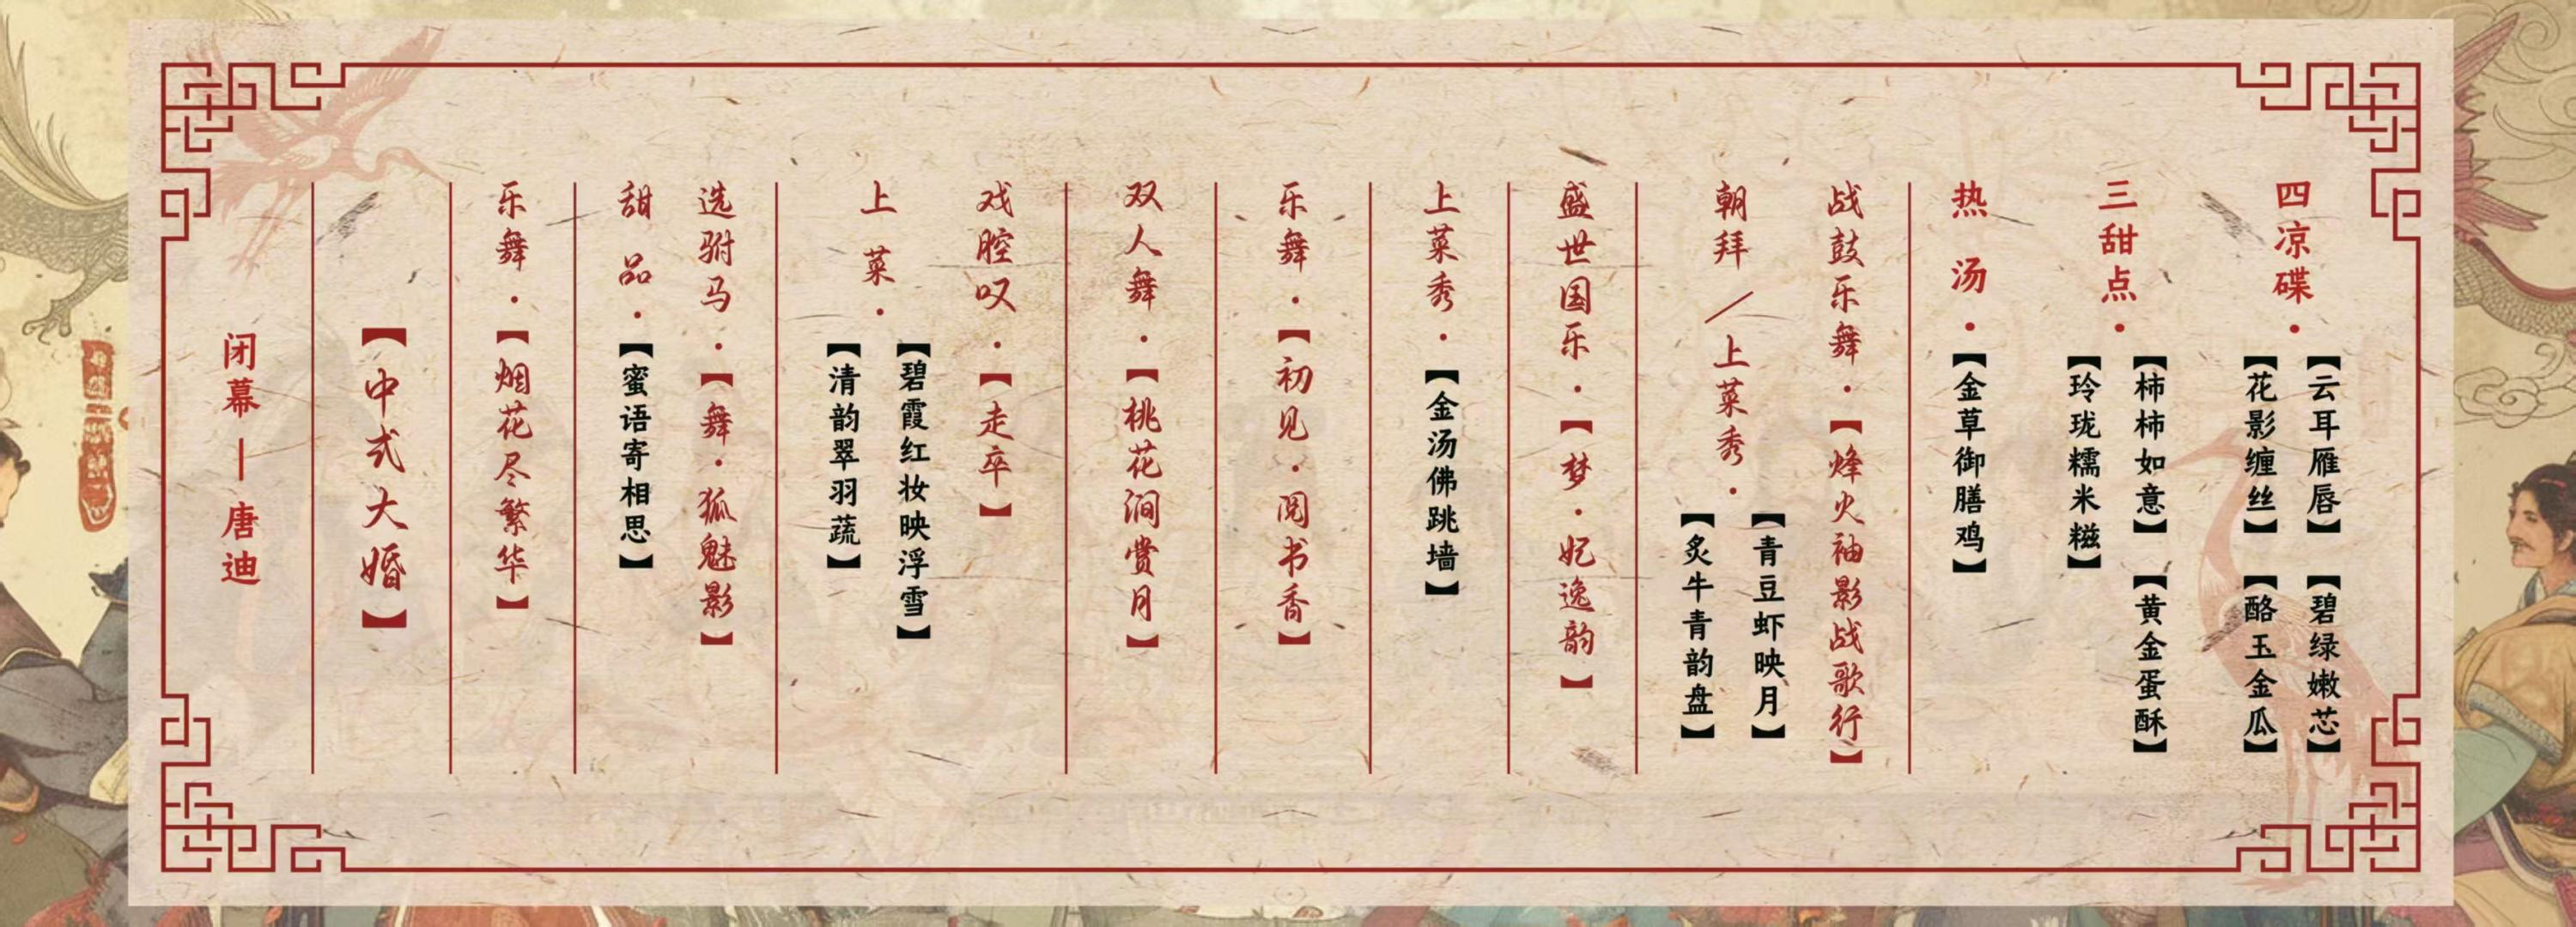 四凉碟·
【云耳雁唇】【碧绿嫩芯】
【花影缠丝】【酪玉金瓜】
三甜点·
【柿柿如意】【黄金蛋酥】
【玲珑糯米糍】
热汤·【金草御膳鸡】
战鼓乐舞·【烽火袖影战歌行】
朝拜／上菜秀·
【青豆虾映月】
【炙牛青韵盘】
盛世国乐·【梦·妃逸韵】
上菜秀·【金汤佛跳墙】
乐舞·【初见·阅书香】
双人舞·【桃花涧赏月】
戏腔叹·【走卒】
上菜·
【碧霞红妆映浮雪】
【清韵翠羽蔬】
选驸马·【舞·狐魅影】
甜品·【蜜语寄相思】
乐舞·【烟花尽繁华】
【中式大婚】
闭幕—唐迪